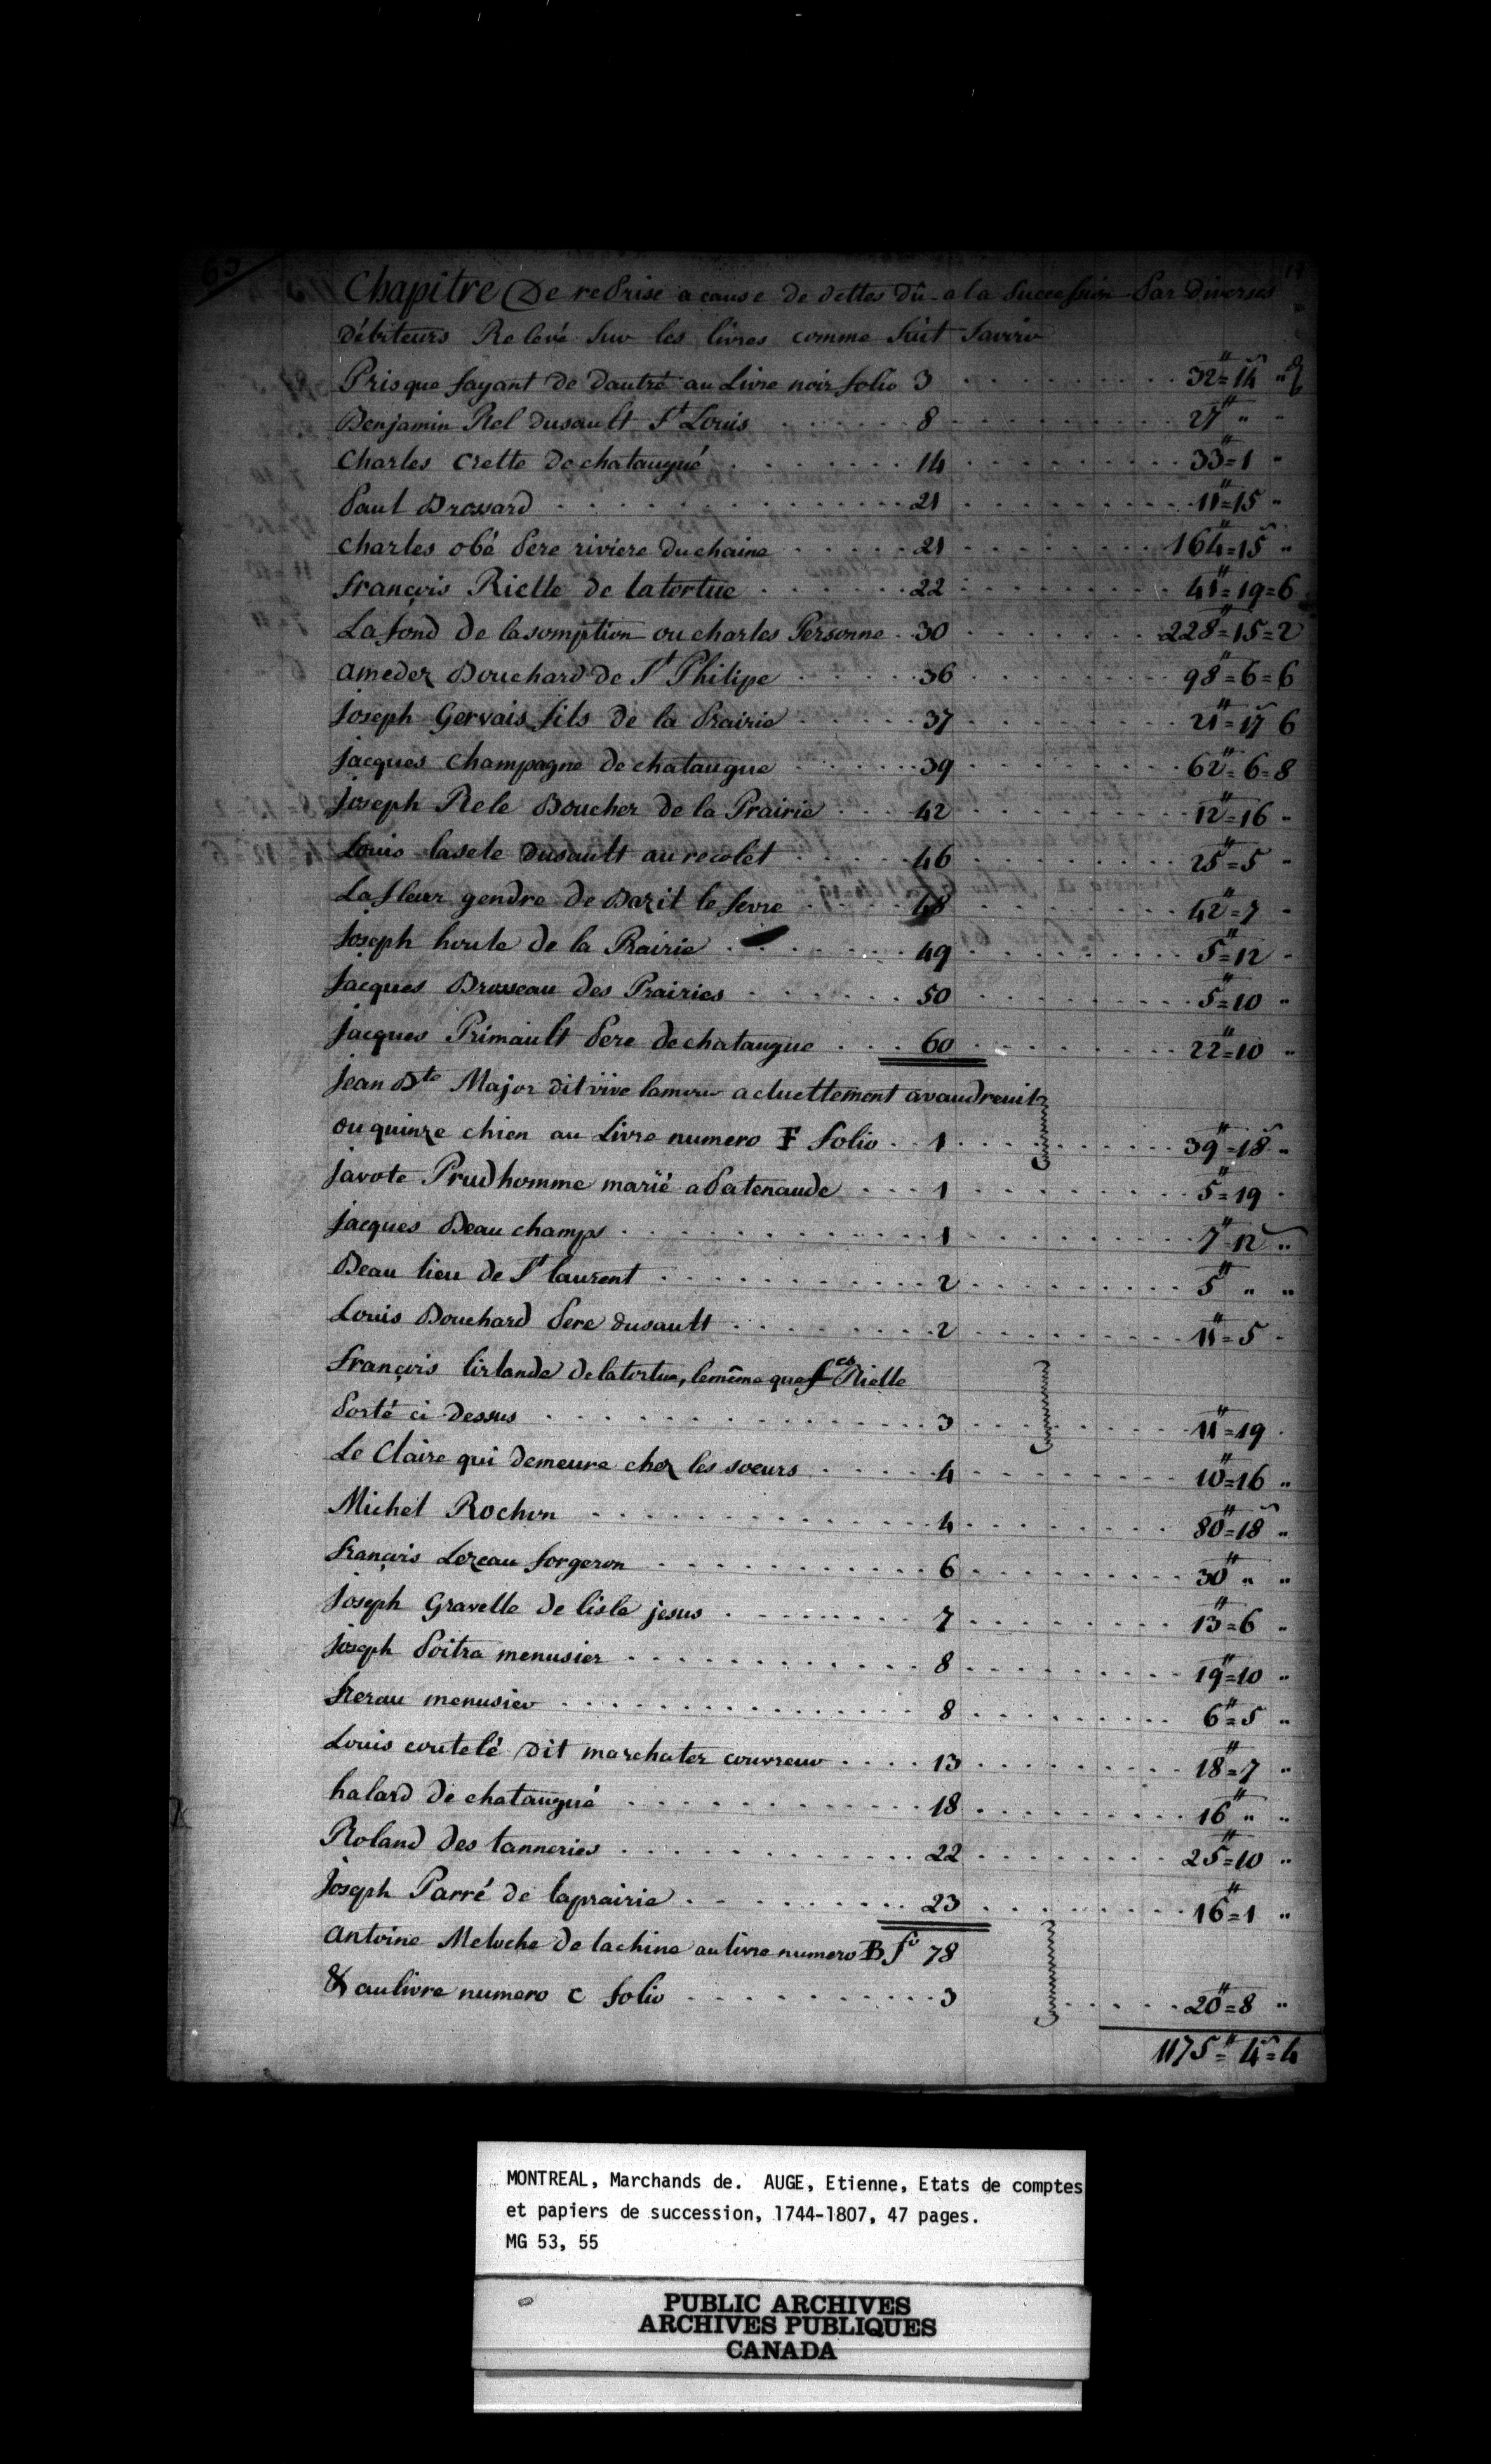 63
Chapitre De reprise a cause de dettes dû a la Succession Par Diverses
Débiteurs Relevé Sur les livres comme Suit Savoir
Prisque fayant de Dautré au Livre noir folio 3 . . . . 32"=14 "
Benjamin Rel dusault St Louis . . . . 8 . . . . 27" " "
Charles Crette de chataugué . . . . 14 . . . . 33"=1 "
Paul Brossard . . . . 21 . . . . 11"=15 "
charles obé Pere riviere du chaine . . . . 21 . . . . 164"=15 "
françois Rielle de latortue . . . . 22 . . . . 41"=19=6
La fond de lasomption ou charles Personne . . 30 . . . . 228"=15=2
amedez Bouchard de St Philipe . . . . 36 . . . . 98"=6=6
Joseph Gervais fils de la Prairie . . . . 37 . . . . 21"=17 6
Jacques Champagne de chataugue . . . . 39 . . . . 62"=6=8
Joseph Rele Boucher de la Prairie . . . . 42 . . . . 12"=16 "
Louis lasele Dusault au recolet . . . . 46 . . . . 25"=5 "
La fleur gendre de Bazil le fevre . . . . 48 . . . . 42"=7 "
Joseph houle de la Prairie . . . . 49 . . . . 5"=12 "
Jacques Brosseau des Prairies . . . . 50 . . . . 5"=10 "
Jacques Primault Pere de chataugue . . . . 60 . . . . 22"=10 "
Jean Bte Major dit vive lamour actuellement avaudreuil
ou quinze chien au Livre numero F folio . . 1 . . . . 39"=18 "
Javote Prudhomme marïé a Patenaude . . . . 1 . . . . 5"=19 "
Jacques Beau champs . . . . 1 . . . . 7"=12 "
Beau lieu de St laurent . . . . 2 . . . . 5" " "
Louis Bouchard Pere dusault . . . . 2 . . . . 11"=5 "
françois lirlande de latortue, lemême que fcs Rielle
Porté ci dessus . . . . 3 . . . . 11"=19 "
Le Claire qui demeure chez les soeurs . . . . 4 . . . . 10"=16 "
Michel Rochon . . . . 4 . . . . 80"=18 "
françois Lezeau forgeron . . . . 6 . . . . 30" " "
Joseph Gravelle de lisle jesus . . . . 7 . . . . 13"=6 "
Joseph Poitra menusier . . . . 8 . . . . 19"=10 "
frerau menusier . . . . 8 . . . . 6"=5 "
Louis coutelé dit marchater couvreur . . . . 13 . . . . 18"=7 "
halard de chataugué . . . . 18 . . . . 16" " "
Roland des tanneries . . . . 22 . . . . 25"=10 "
Joseph Parré de laprairie . . . . 23 . . . . 16"=1 "
Antoine Meloche de lachine au livre numero B fo 78
& au livre numero C folio . . . . 3 . . . . 20"=8 "
1175"=4=4
MONTREAL, Marchands de. AUGE, Etienne, Etats de comptes
et papiers de succession, 1744-1807, 47 pages.
MG 53, 55
PUBLIC ARCHIVES
ARCHIVES PUBLIQUES
CANADA